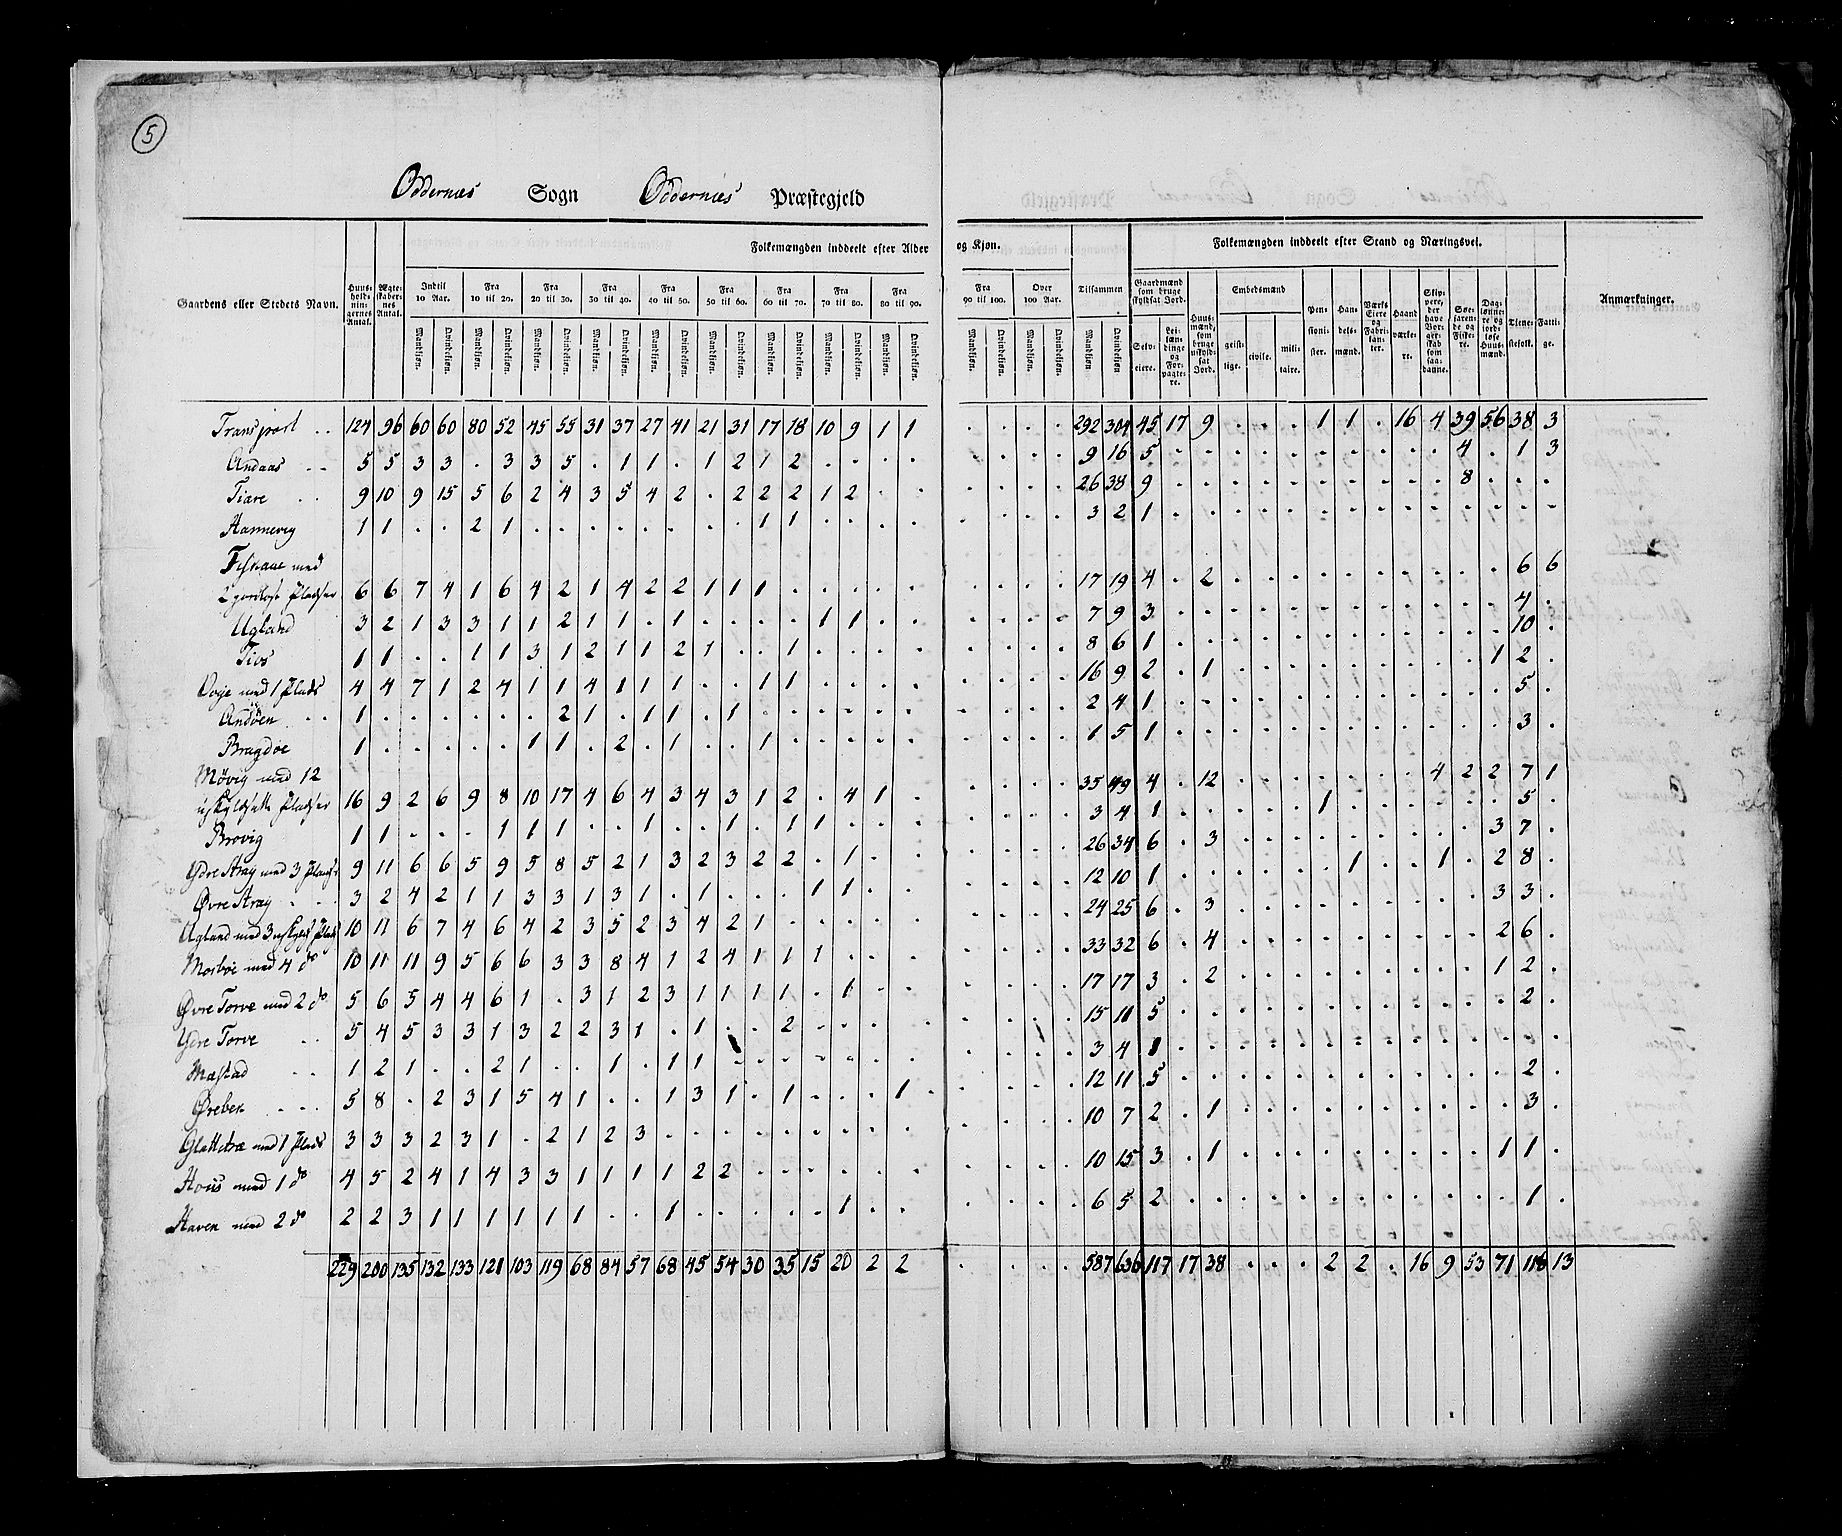 5
Oddernæs Sogn Oddernæs Præstegjeld
Gaardens eller Stedets Navn. Huus-hold-nin-gernes Antal. Ægte-skaber-nes Antal. Folkemængden inddeelt efter Alder og Kjøn. Tilsammen Folkemængden inddeelt efter Stand og Næringsvei. Anmærkninger.
Indtil 10 Aar. Fra 10 til 20. Fra 20 til 30. Fra 30 til 40. Fra 40 til 50. Fra 50 til 60. Fra 60 til 70. Fra 70 til 80. Fra 80 til 90. Fra 90 til 100. Over 100 Aar. Gaardmænd som bruge skyldsat Jord. Huus-mænd, som bruge uskyld-sat Jord. Embedsmænd Pen-sioni-ster. Han-dels-mænd. Værks Eiere og Fabri-kan-ter. Haand værke-re. Søe-faren-de og Fiske-re. Dag-lønne-re og jord-løse Huus-mænd. Tiene-stefolk. Fatti-ge.
Mandkjøn. Qvindekjøn. Selv-eiere. Lei-læn-dinge og For-pagte-re. geist-lige. civile. mili-taire.
Transport . . 124 96 60 60 80 52 45 55 31 37 27 41 21 31 17 18 10 9 1 1 . . . . 292 304 45 17 9 . . . 1 1 . 16 4 39 56 38 3
Andaas . . 5 5 3 3 . 3 3 5 . 1 1 . 1 2 1 2 . . . . . . . . 9 16 5 . . . . . . . . . . 4 . 1 3
Tiare . . 9 10 9 15 5 6 2 4 3 5 4 2 . 2 2 2 1 2 . . . . . . 26 38 9 . . . . . . . . . . 8 . . .
Hannevig 1 1 . . 2 1 . . . . . . . . 1 1 . . . . . . . . 3 2 1 . . . . . . . . . . . . . .
med
2 Pladser 6 6 7 4 1 6 4 2 1 4 2 2 1 1 1 . . . . . . . . . 17 19 4 . 2 . . . . . . . . . . 6 6
Ugland 3 2 1 3 3 1 1 2 1 1 . 1 . . . . 1 1 . . . . . . 7 9 3 . . . . . . . . . . . . 4 .
Tios 1 1 . . 1 1 3 1 2 1 1 2 1 . . 1 . . . . . . . . 8 6 1 . . . . . . . . . . . . 10 .
med 1 Plads 4 4 7 1 2 4 1 1 4 1 1 1 . . 1 1 . . . . . . . . 16 9 2 . 1 . . . . . . . . . 1 2 .
Andöen . . 1 . . . . . . 2 1 . 1 1 . 1 . . . . . . . . . . 2 4 1 . . . . . . . . . . . . 5 .
Bragdøe 1 . . . . . 1 1 . 2 . 1 . . 1 . . . . . . . . . 1 5 1 . . . . . . . . . . . . 3 .
Møvig med 12
uskyldsatte Pladser 16 9 2 6 9 8 10 17 4 6 4 3 4 3 1 2 . 4 1 . . . . . 35 49 4 . 12 . . . . . . . 4 2 2 7 1
Brovig 1 1 . . . 1 1 1 . . 1 . . 1 . 1 1 . . . . . . . 3 4 1 . . . . . 1 . . . . . . 5 .
Ydre Strag med 3 Pladser 9 11 6 6 5 9 5 8 5 2 1 3 2 3 2 2 . 1 . . . . . . 26 34 6 . 3 . . . . . . . . . 3 7 .
Øvre Strag . . . 3 2 4 2 1 1 3 3 1 3 1 . 1 . . . 1 1 . . . . . . 12 10 1 . . . . . . 1 . . 1 . 2 8 .
Ugland med 3 uskyld. Plads 10 11 6 7 4 6 4 2 3 5 2 3 4 2 1 . . . . . . . . . 24 25 6 . 3 . . . . . . . . . 3 3 .
Mosbøe med 4 do 10 11 11 9 5 6 6 3 3 8 4 1 2 4 1 1 1 . . . . . . . 33 32 6 . 4 . . . . . . . . . 2 6 .
Øvre Torve med 2 do 5 6 5 4 4 6 1 . 3 1 2 3 1 1 1 1 . 1 . . . . . . 17 17 3 . 2 . . . . . . . . . 1 2 .
Ydre Torve . . 5 4 5 3 3 1 3 2 2 3 1 . 1 . . 2 . . . . . . . . 15 11 5 . . . . . . . . . . . . 2 .
Mæstad . . 1 2 1 . . 2 1 . . 1 . 1 1 . . . . . . . . . . . 3 4 1 . . . . . . . . . . . . . .
Ørebek . . . 5 8 . 2 3 1 5 4 1 . . 1 3 1 . 1 . . . 1 . . . . 12 11 5 . . . . . . . . . . . . 2 .
Glattetræ med 1 Plads 3 3 3 2 3 1 . 2 1 2 3 . . . . . . . . . . . . . 10 7 2 . 1 . . . . . . . . . . 3 .
Hous med 1 do 4 5 2 4 1 4 3 3 1 1 1 1 2 2 . . . . . . . . . . 10 15 3 . 1 . . . . . . . . . 1 1 .
Haven med 2 do 2 2 3 1 1 1 1 1 1 . . 1 . . . . . 1 . . . . . . 6 5 2 . . . . . . . . . . . . 1 .
229 200 135 132 133 121 103 119 68 84 57 68 45 54 30 35 15 20 2 2 . . . . 587 636 117 17 38 . . . 2 2 . 16 9 53 71 116 13